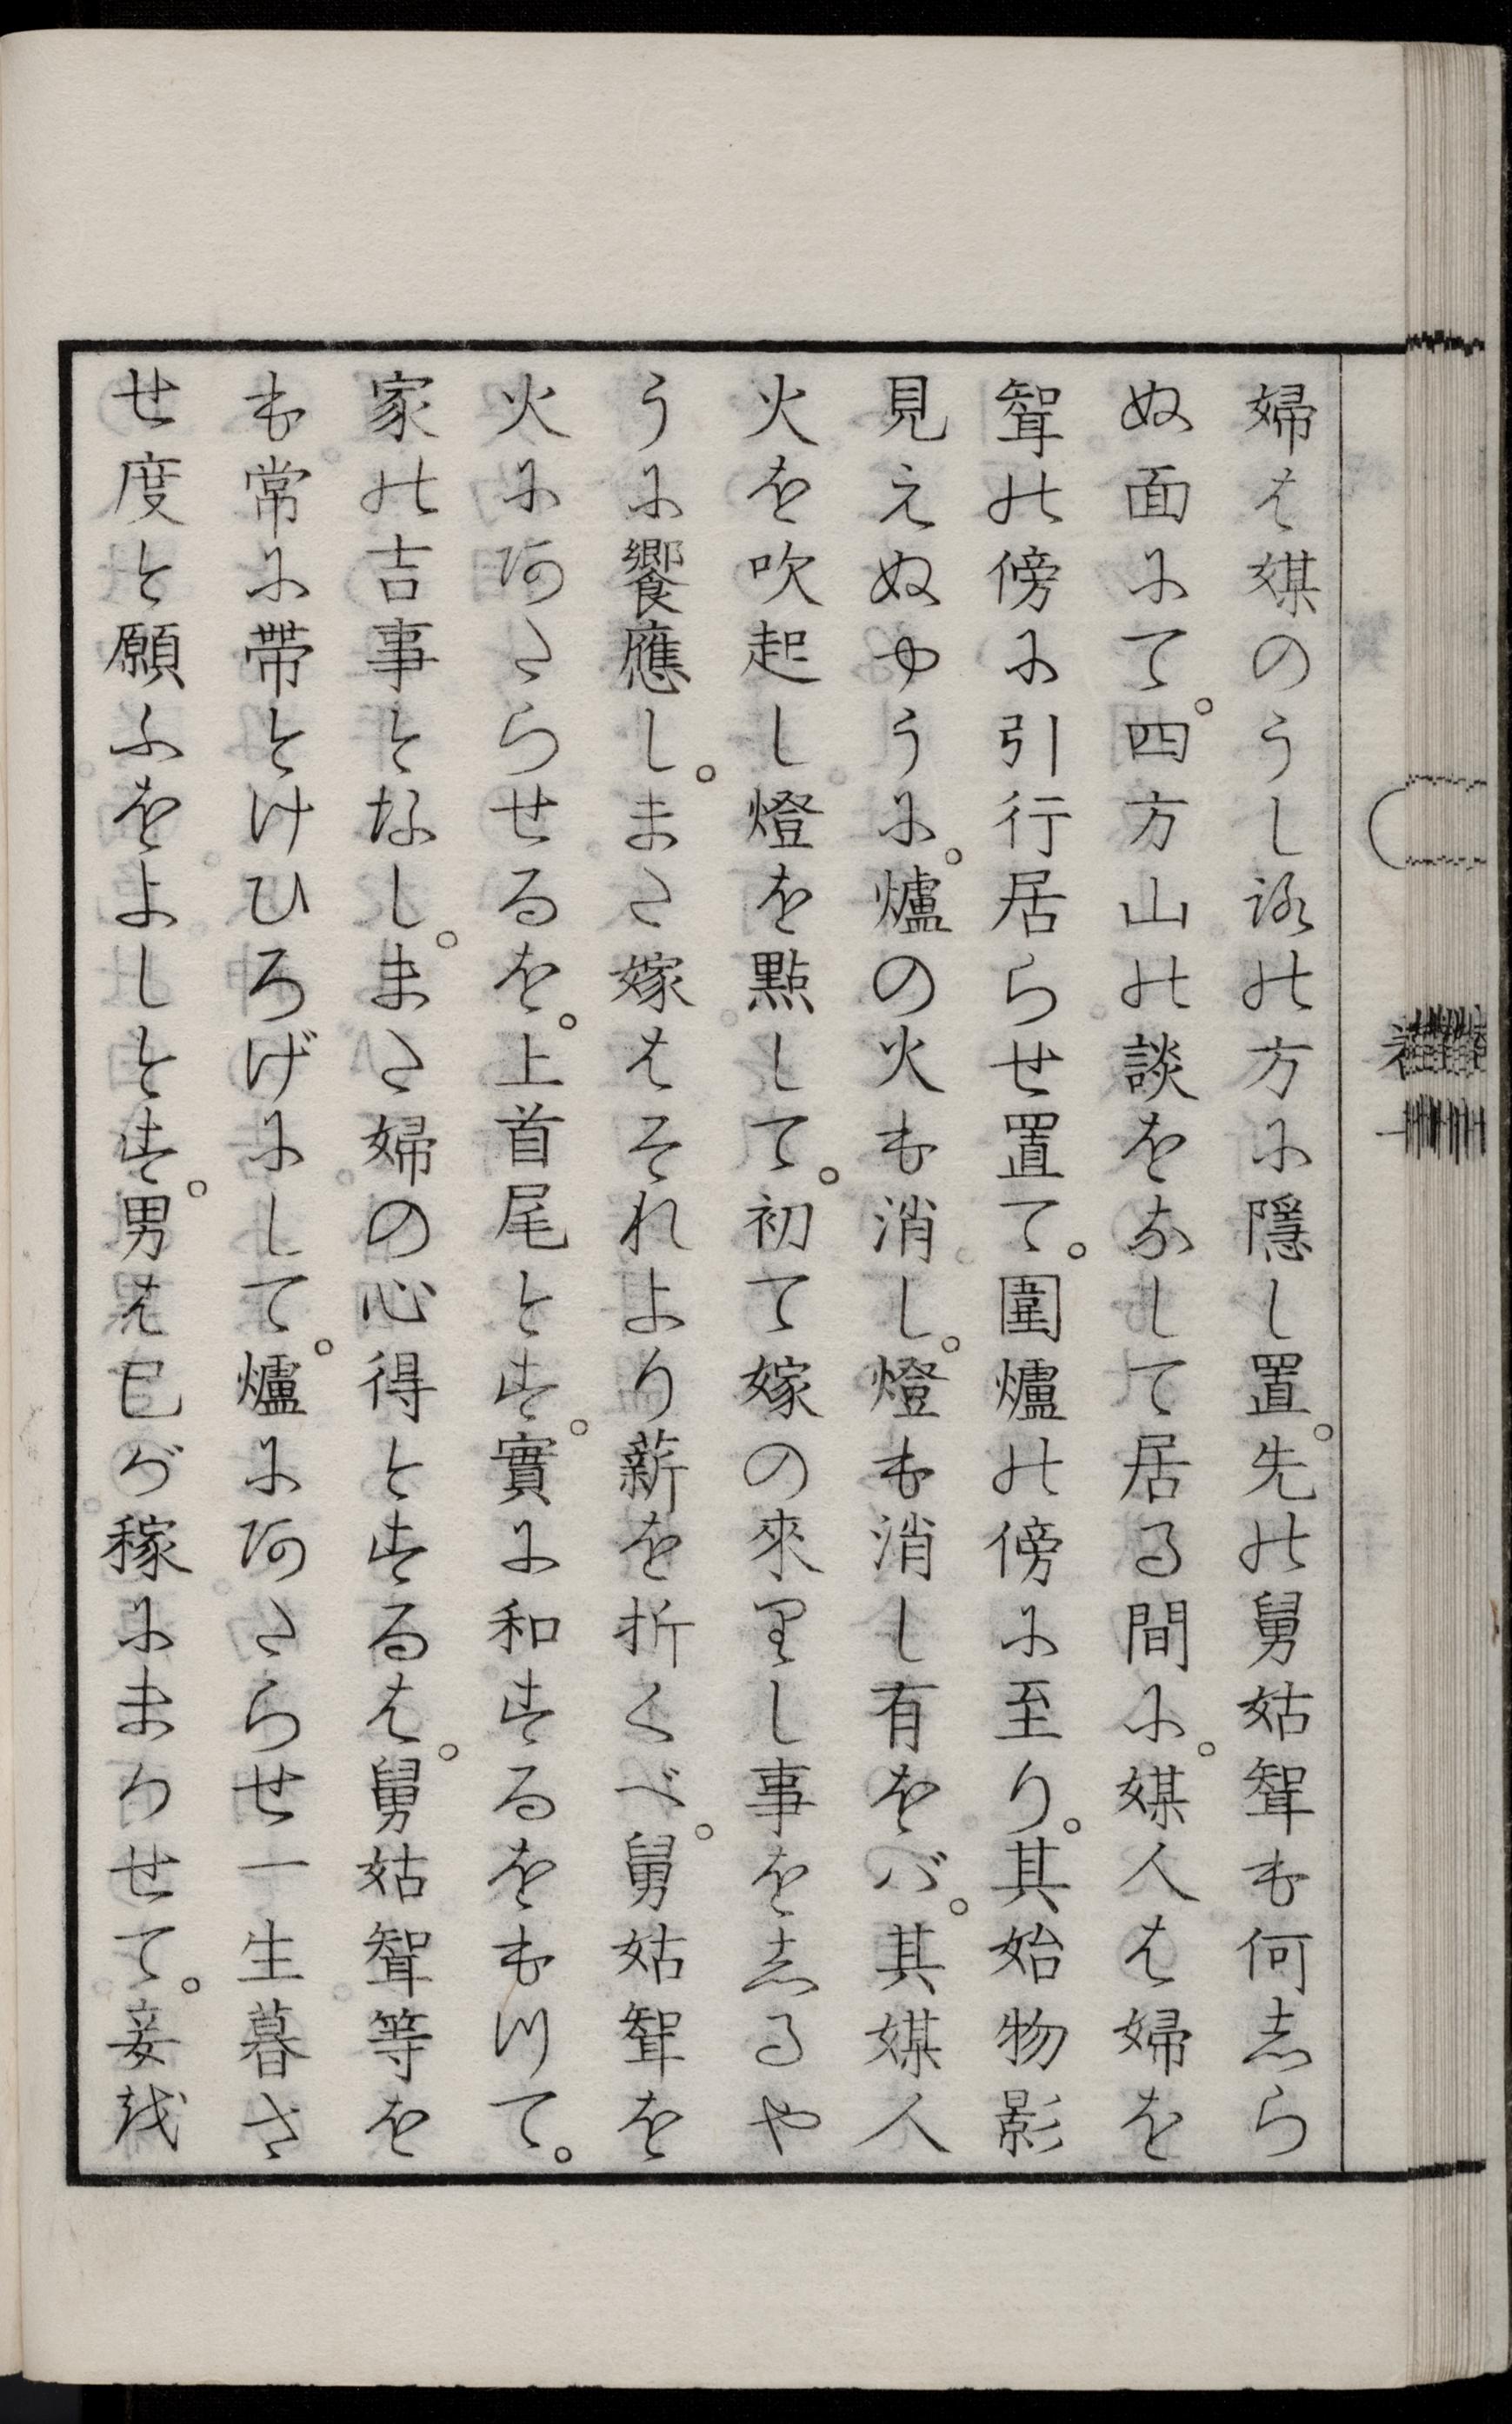 婦は媒のうしろの方に隱し置。先の舅姑聟も何しら
ぬ面にて。四方山の談をなして居る間に。媒人は婦を
聟の傍に引行居らせ置て。圍爐の傍に至り。其始物影
見えぬやうに。爐の火も消し。燈も消し有をバ。其媒人
火を吹起し燈を點して。初て嫁の來りし事をしるや
うに饗應し。また嫁はそれより薪を折くべ。舅姑聟を
火にあたらせるを。上首尾とす。實に和するをもつて。
家の吉事となし。また婦の心得とするは。舅姑聟等を
も常に帶とけひろげにして。爐にあたらせ一生暮さ
せ度と願ふをよしとす。男は已が稼にまかせて。妾を